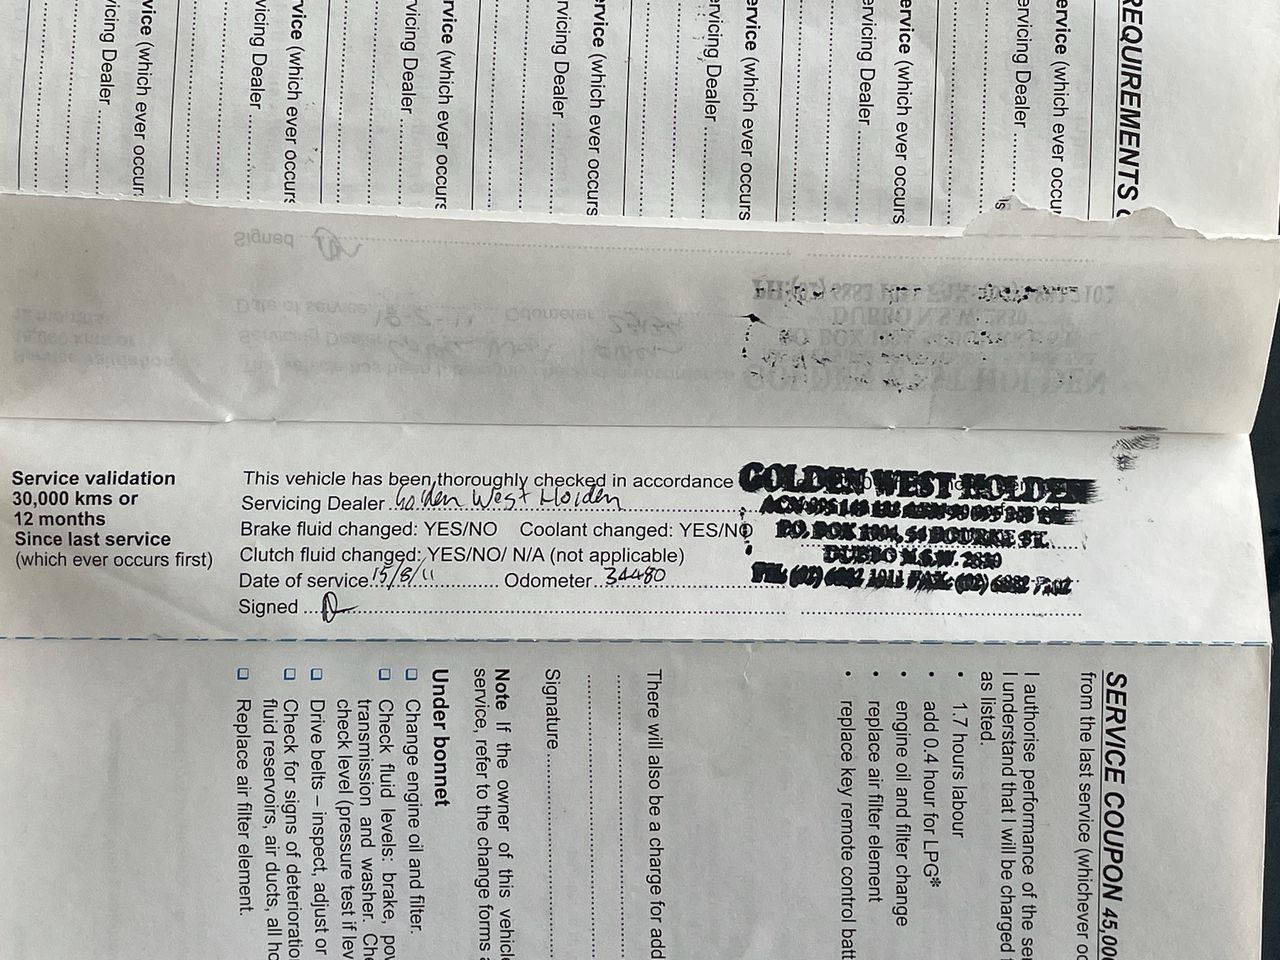 REQUIREMENTS
ervice (which ever occur
ervicing Dealer
ervice (which ever occurs
ervicing Dealer
ervice (which ever occurs
ervicing Dealer
ervice (which ever occurs
rvicing Dealer
rvice (which ever occurs
vicing Dealer
rvice (which ever occurs
vicing Dealer
vice (which ever occur
icing Dealer
Signed
Date of service 18-2-11 Odometer
Servicing Dealer
GOLDEN WEST HOLDEN
DUBBO N.S.W. 2830
Service validation
30,000 kms or
12 months
Since last service
(which ever occurs first)
This vehicle has been thoroughly checked in accordance
Servicing Dealer Golden West Holden
Brake fluid changed: YES/NO Coolant changed: YES/NO
Clutch fluid changed: YES/NO/ N/A (not applicable)
Date of service 15/8/11 Odometer 34480
Signed
GOLDEN WEST HOLDEN
P.O. BOX 1004, 54 BOURKE ST.
DUBBO N.S.W. 2830
SERVICE COUPON 45,00
from the last service (whichever oc
I authorise performance of the ser
I understand that I will be charged
as listed.
• 1.7 hours labour
• add 0.4 hour for LPG*
• engine oil and filter change
• replace air filter element
• replace key remote control batt
There will also be a charge for add
Signature
Note If the owner of this vehicle
service, refer to the change forms
Under bonnet
Change engine oil and filter.
Check fluid levels: brake, pow
transmission and washer. Che
check level (pressure test if lev
Drive belts – inspect, adjust or
Check for signs of deterioratio
fluid reservoirs, air ducts, all ho
Replace air filter element.